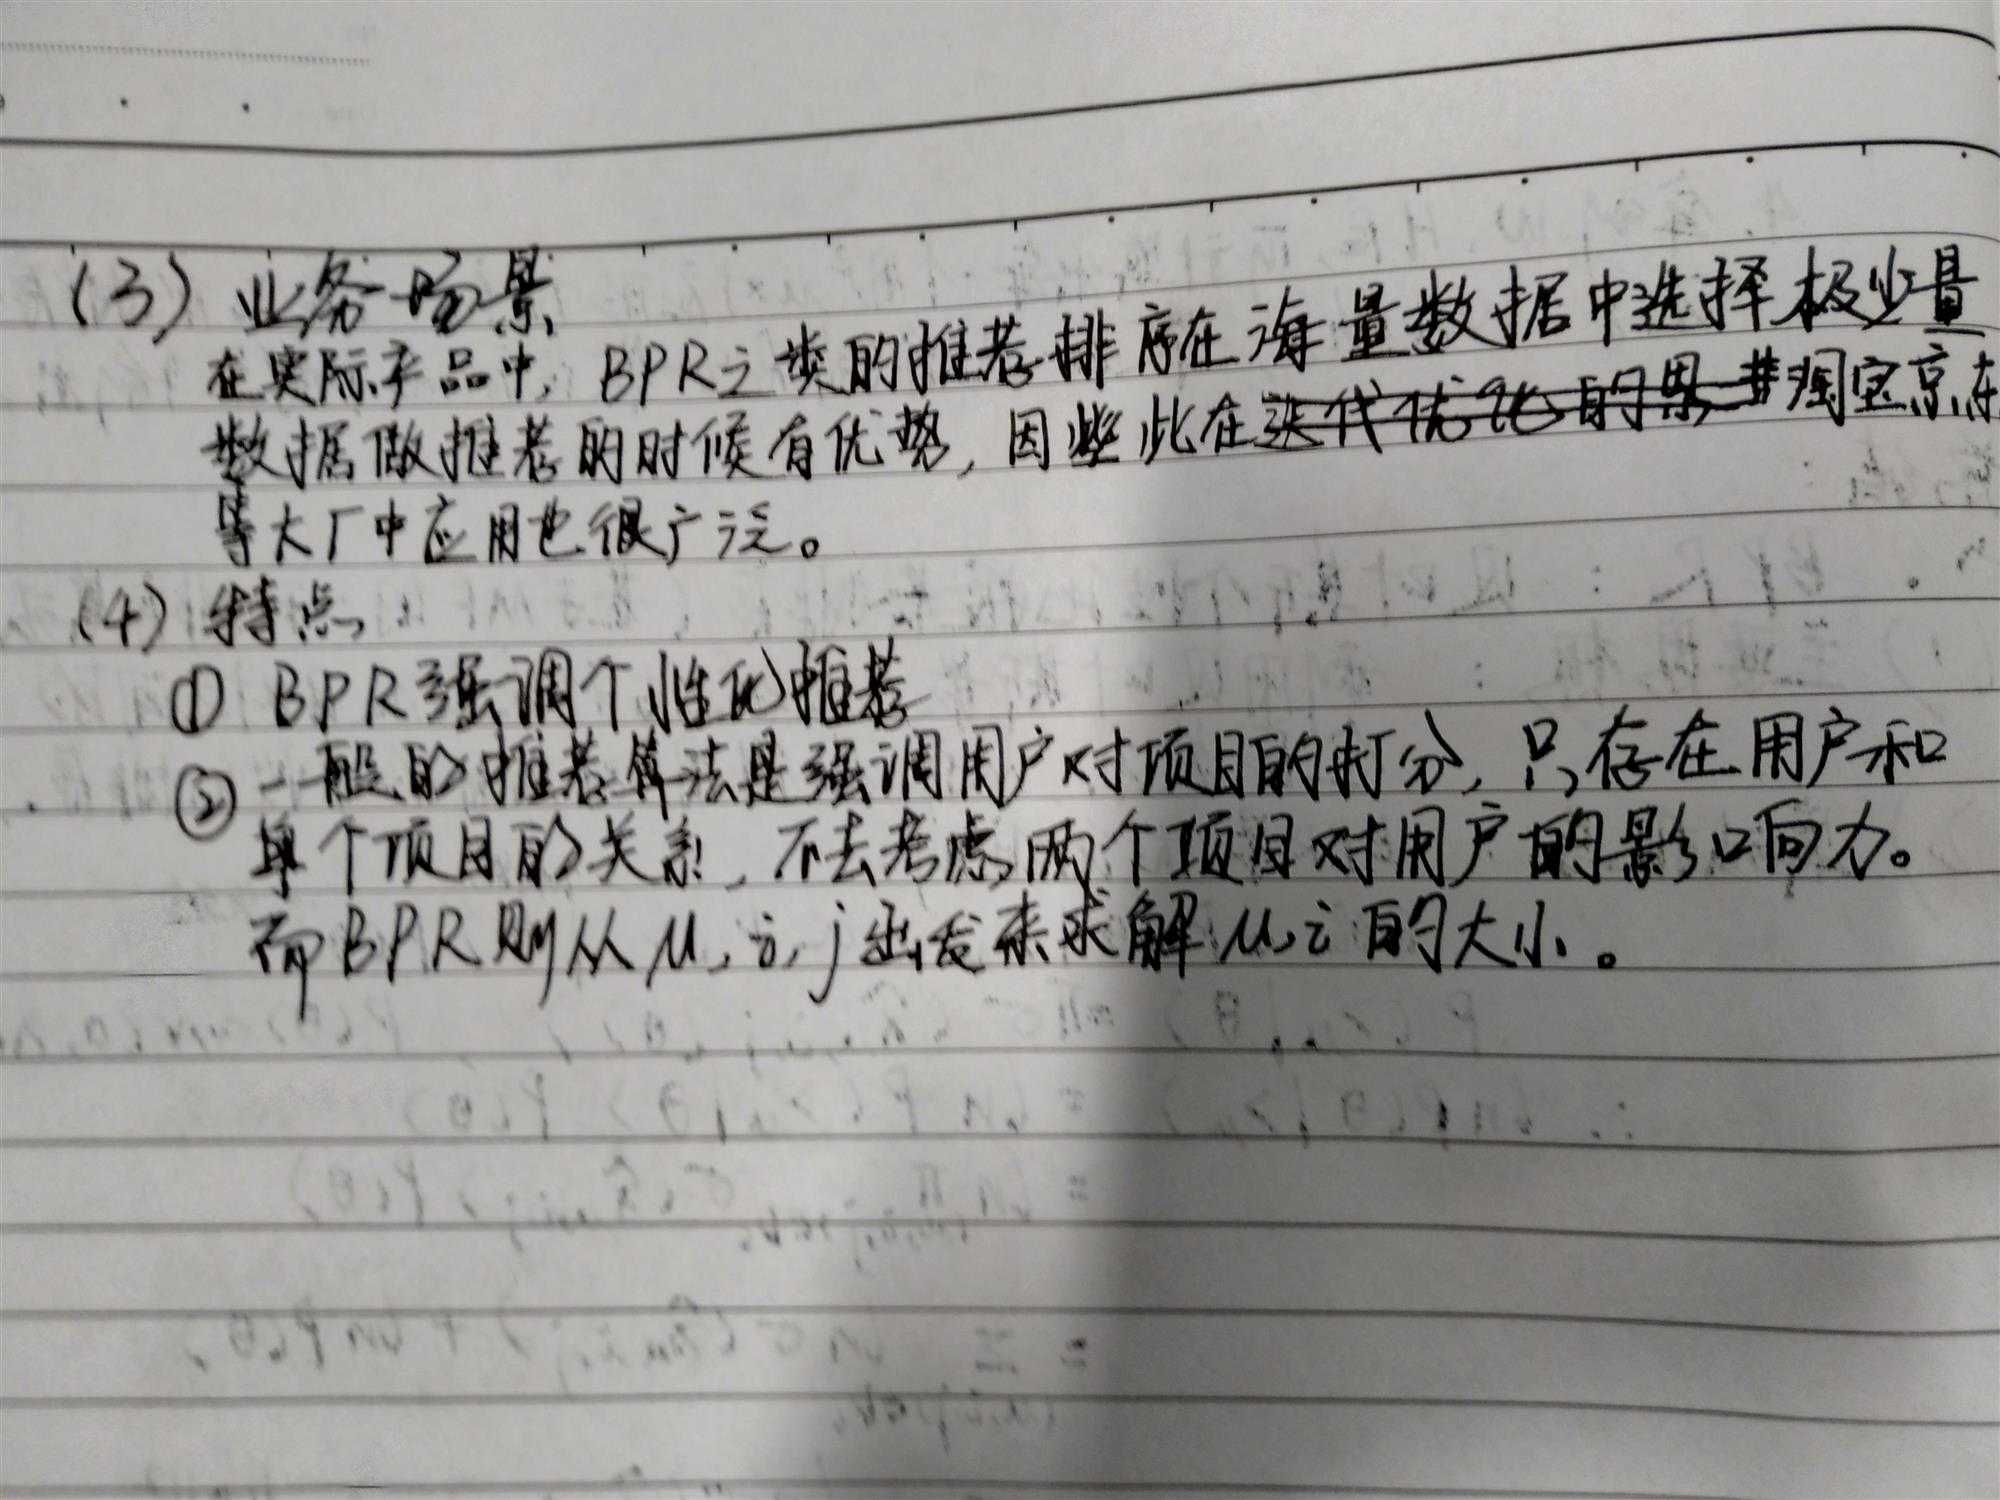 (3) 业务场景
在实际产品中, BPR之类的推荐排序在海量数据中选择极少量
数据做推荐的时候有优势, 因此在迭代优化的淘宝京东
等大厂中应用也很广泛。
(4) 特点
① BPR强调个性化推荐
② 一般的推荐算法是强调用户对项目的打分, 只存在用户和
单个项目的关系, 不去考虑两个项目对用户的影响力。
而BPR则从μ, i, j出发来求解μ, i的大小。